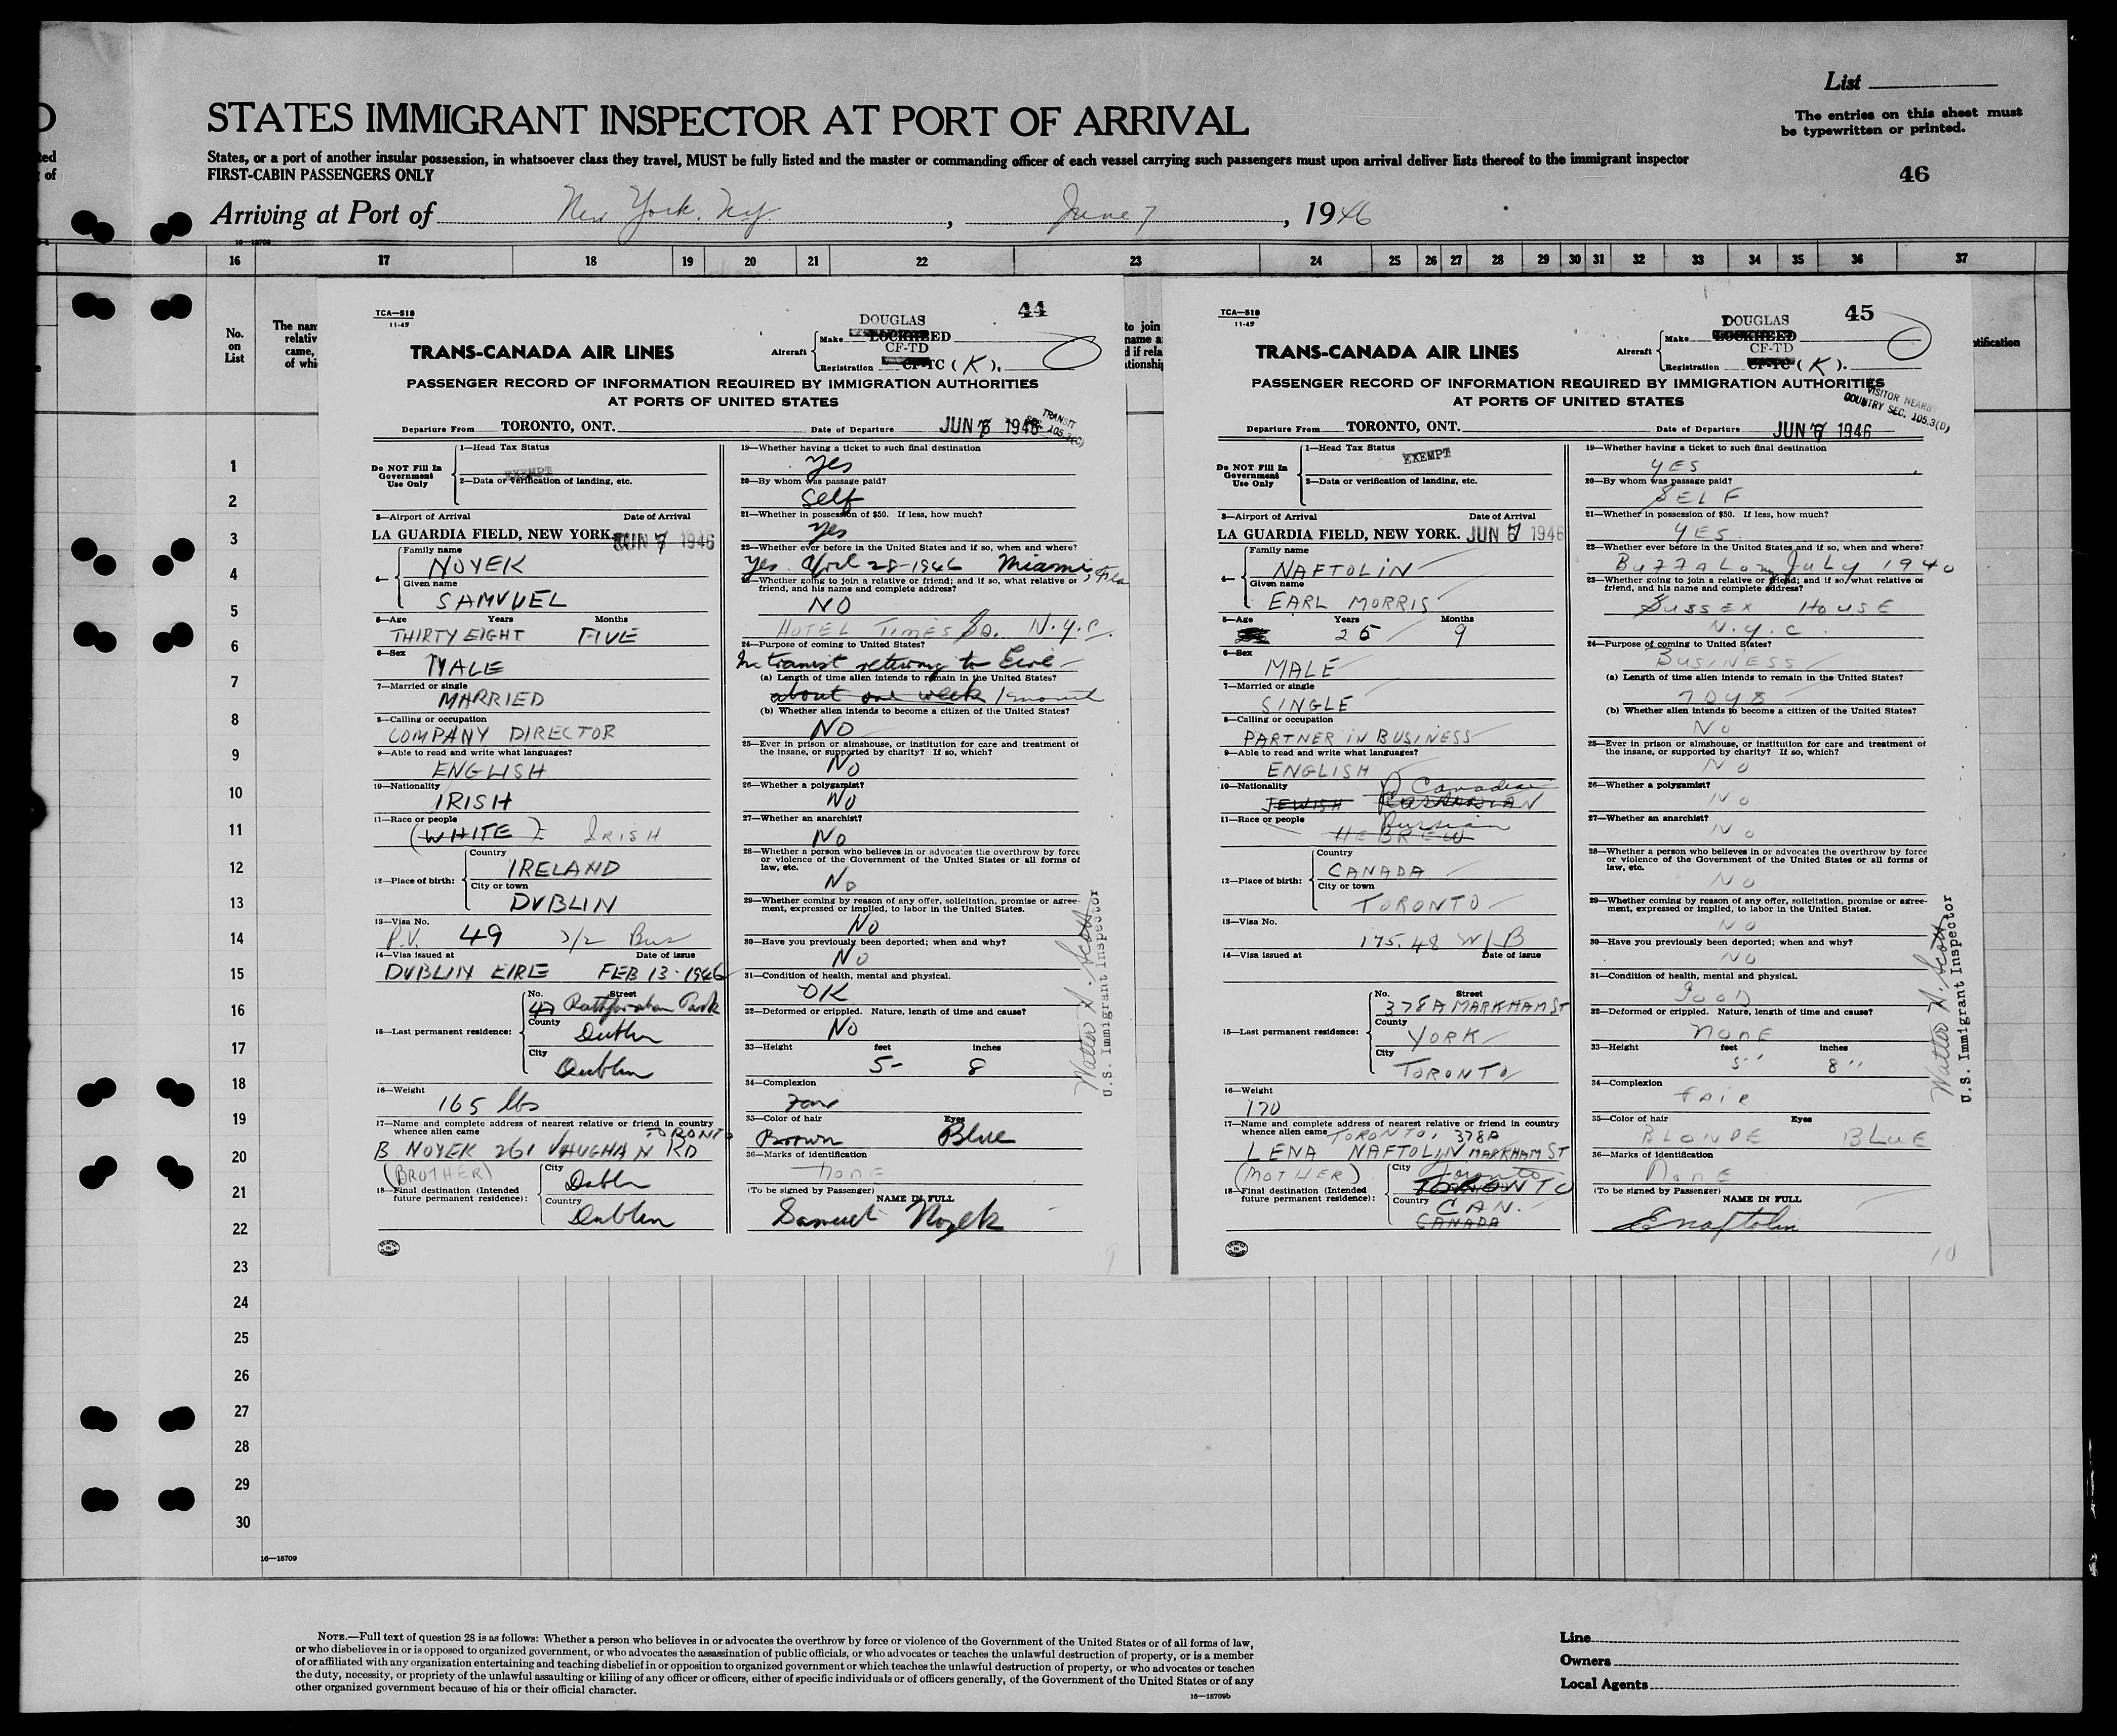 List
STATES IMMIGRANT INSPECTOR AT PORT OF ARRIVAL
The entries on this sheet must
be typewritten or printed.
States, or a port of another insular possession, in whatsoever class they travel, MUST be fully listed and the master or commanding officer of each vessel carrying such passengers must upon arrival deliver lists thereof to the immigrant inspector
FIRST-CABIN PASSENGERS ONLY
46
Arriving at Port of New York, N.Y. , June 7 , 1946
16 17 18 19 20 21 22 23 24 25 26 27 28 29 30 31 32 33 34 35 36 37
No.
on
List
1
2
3
4
5
6
7
8
9
10
11
12
13
14
15
16
17
18
19
20
21
22
23
24
25
26
27
28
29
30
16—18709
TCA—518
11-45
44
DOUGLAS
Aircraft
Make LOCKHEED
CF-TD
Registration CF-TC (K).
TRANS-CANADA AIR LINES
PASSENGER RECORD OF INFORMATION REQUIRED BY IMMIGRATION AUTHORITIES
AT PORTS OF UNITED STATES
TRANSIT
Departure From TORONTO, ONT. Date of Departure JUN 7 1946
Do NOT Fill In
Government
Use Only
1—Head Tax Status
EXEMPT
2—Data or verification of landing, etc.
3—Airport of Arrival Date of Arrival
LA GUARDIA FIELD, NEW YORK. JUN 7 1946
4—
Family name
NOYEK
Given name
SAMVUEL
5—Age Years Months
THIRTY EIGHT FIVE
6—Sex
MALE
7—Married or single
MARRIED
8—Calling or occupation
COMPANY DIRECTOR
9—Able to read and write what languages?
ENGLISH
10—Nationality
IRISH
11—Race or people
(WHITE) IRISH
12—Place of birth:
Country
IRELAND
City or town
DVBLIN
13—Visa No.
P.V. 49 3/2 Bus
14—Visa issued at Date of issue
DVBLIN EIRE FEB 13-1946
15—Last permanent residence:
No. Street
47 Park
County
Dublin
City
Dublin
16—Weight
165 lbs
17—Name and complete address of nearest relative or friend in country
whence alien came TORONTO
B NOYEK 261 VAUGHAN RD
(BROTHER)
18—Final destination (Intended
future permanent residence):
City
Dublin
Country
Dublin
19—Whether having a ticket to such final destination
yes
20—By whom was passage paid?
Self
21—Whether in possession of $50. If less, how much?
yes
22—Whether ever before in the United States and if so, when and where?
Yes April 28-1946 Miami, Fla
23—Whether going to join a relative or friend; and if so, what relative or
friend, and his name and complete address?
NO
HOTEL TIMES SQ. N.Y.C.
24—Purpose of coming to United States?
In transit returning to Eire
(a) Length of time alien intends to remain in the United States?
about one week 1 month
(b) Whether alien intends to become a citizen of the United States?
NO
25—Ever in prison or almshouse, or institution for care and treatment of
the insane, or supported by charity? If so, which?
No
26—Whether a polygamist?
No
27—Whether an anarchist?
No
28—Whether a person who believes in or advocates the overthrow by force
or violence of the Government of the United States or all forms of
law, etc.
No
29—Whether coming by reason of any offer, solicitation, promise or agree-
ment, expressed or implied, to labor in the United States.
No
30—Have you previously been deported; when and why?
No
31—Condition of health, mental and physical.
OK
32—Deformed or crippled. Nature, length of time and cause?
No
33—Height feet inches
5- 8
34—Complexion
Fair
35—Color of hair Eyes
Brown Blue
36—Marks of identification
None
(To be signed by Passenger) NAME IN FULL
Samuel Noyek
Walter H. Scott
U.S. Immigrant Inspector
9
TCA—518
11-45
45
DOUGLAS
Aircraft
Make LOCKHEED
CF-TD
Registration CF-TC (K).
TRANS-CANADA AIR LINES
PASSENGER RECORD OF INFORMATION REQUIRED BY IMMIGRATION AUTHORITIES
AT PORTS OF UNITED STATES
VISITOR NEARBY
COUNTRY SEC. 105.3(D)
Departure From TORONTO, ONT. Date of Departure JUN 7 1946
Do NOT Fill In
Government
Use Only
1—Head Tax Status
EXEMPT
2—Data or verification of landing, etc.
3—Airport of Arrival Date of Arrival
LA GUARDIA FIELD, NEW YORK. JUN 7 1946
4—
Family name
NAFTOLIN
Given name
EARL MORRIS
5—Age Years Months
25 9
6—Sex
MALE
7—Married or single
SINGLE
8—Calling or occupation
PARTNER IN BUSINESS
9—Able to read and write what languages?
ENGLISH
10—Nationality
Canadian
JEWISH CANADIAN
11—Race or people
Russian
HEBREW
12—Place of birth:
Country
CANADA
City or town
TORONTO
13—Visa No.
175.48 W/B
14—Visa issued at Date of issue
15—Last permanent residence:
No. Street
378A MARKHAM ST
County
YORK
City
TORONTO
16—Weight
170
17—Name and complete address of nearest relative or friend in country
whence alien came TORONTO, 378A
LENA NAFTOLIN MARKHAM ST
(MOTHER)
18—Final destination (Intended
future permanent residence):
City
Toronto
TORONTO
Country
CAN.
CANADA
19—Whether having a ticket to such final destination
YES
20—By whom was passage paid?
SELF
21—Whether in possession of $50. If less, how much?
YES
22—Whether ever before in the United States and if so, when and where?
BUFFALO NY July 1940
23—Whether going to join a relative or friend; and if so, what relative or
friend, and his name and complete address?
SUSSEX HOUSE
N.Y.C.
24—Purpose of coming to United States?
BUSINESS
(a) Length of time alien intends to remain in the United States?
(b) Whether alien intends to become a citizen of the United States?
No
25—Ever in prison or almshouse, or institution for care and treatment of
the insane, or supported by charity? If so, which?
No
26—Whether a polygamist?
No
27—Whether an anarchist?
No
28—Whether a person who believes in or advocates the overthrow by force
or violence of the Government of the United States or all forms of
law, etc.
NO
29—Whether coming by reason of any offer, solicitation, promise or agree-
ment, expressed or implied, to labor in the United States.
NO
30—Have you previously been deported; when and why?
NO
31—Condition of health, mental and physical.
Good
32—Deformed or crippled. Nature, length of time and cause?
NONE
33—Height feet inches
5' 8''
34—Complexion
FAIR
35—Color of hair Eyes
BLONDE BLUE
36—Marks of identification
None
(To be signed by Passenger) NAME IN FULL
E Naftolin
Walter H. Scott
U.S. Immigrant Inspector
10
NOTE.—Full text of question 28 is as follows: Whether a person who believes in or advocates the overthrow by force or violence of the Government of the United States or of all forms of law,
or who disbelieves in or is opposed to organized government, or who advocates the assassination of public officials, or who advocates or teaches the unlawful destruction of property, or is a member
of or affiliated with any organization entertaining and teaching disbelief in or opposition to organized government or which teaches the unlawful destruction of property, or who advocates or teaches
the duty, necessity, or propriety of the unlawful assaulting or killing of any officer or officers, either of specific individuals or of officers generally, of the Government of the United States or of any
other organized government because of his or their official character.
16—18709b
Line
Owners
Local Agents